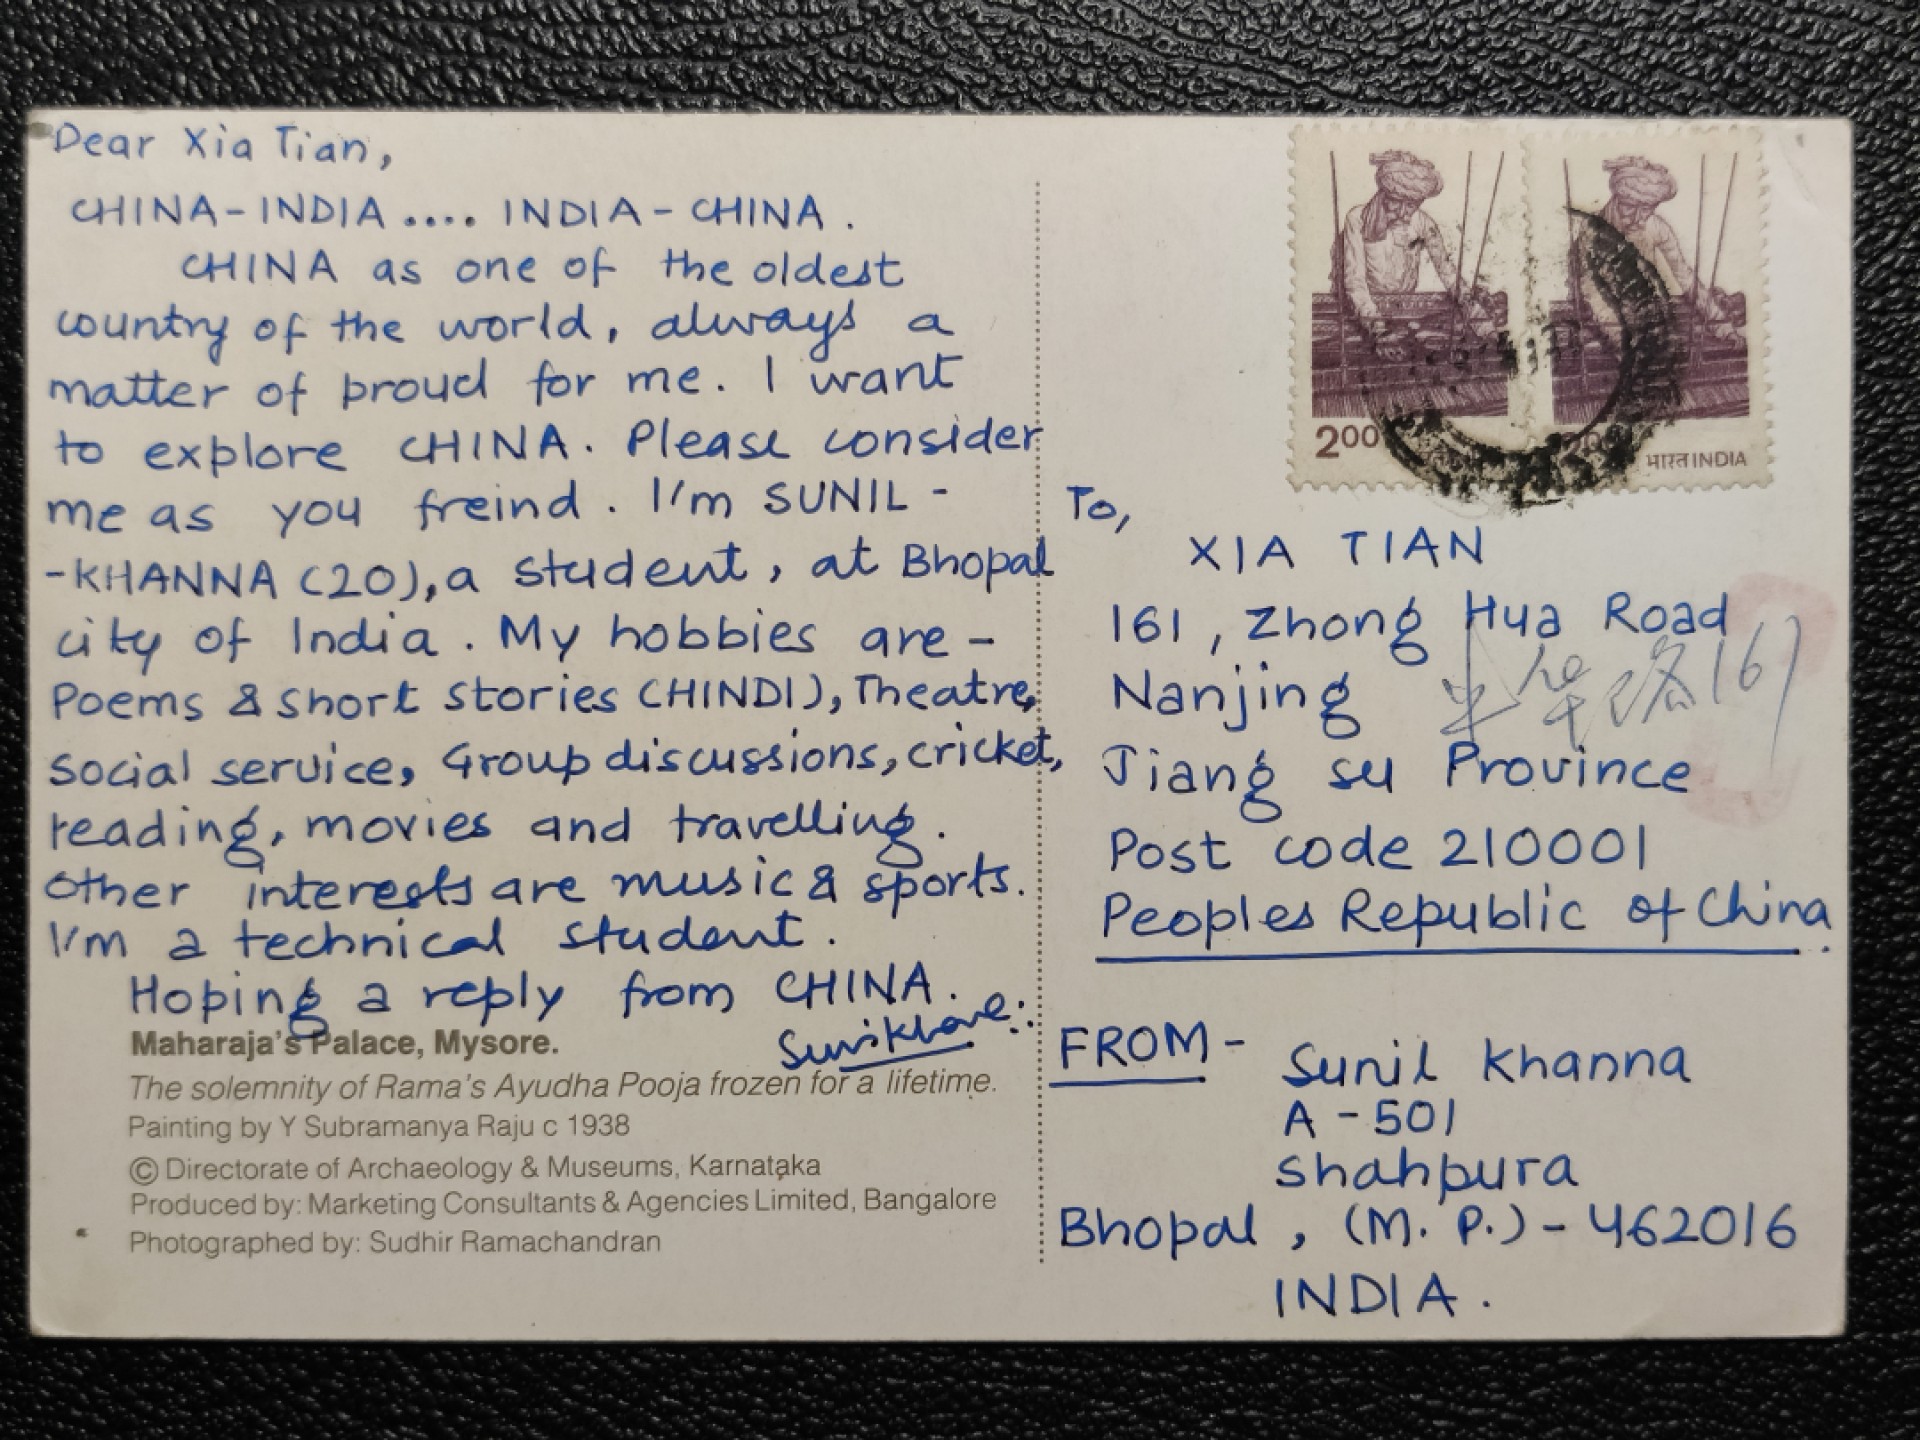 Dear Xia Tian,
CHINA-INDIA .... INDIA-CHINA.
CHINA as one of the oldest
country of the world, always a
matter of proud for me. I want
to explore CHINA. Please consider
me as you freind. I'm SUNIL-
-KHANNA (20), a student, at Bhopal
city of India. My hobbies are-
Poems & short stories (HINDI), Theatre,
social service, Group discussions, cricket,
reading, movies and travelling.
Other interests are music & sports.
I'm a technical student.
Hoping a reply from CHINA.
Maharaja's Palace, Mysore.
The solemnity of Rama's Ayudha Pooja frozen for a lifetime.
Painting by Y Subramanya Raju c 1938
© Directorate of Archaeology & Museums, Karnataka
Produced by: Marketing Consultants & Agencies Limited, Bangalore
Photographed by: Sudhir Ramachandran
200
भारत INDIA
To,
XIA TIAN
161, Zhong Hua Road
中华路161
Nanjing
Jiang su Province
Post code 210001
Peoples Republic of China.
FROM- Sunil Khanna
A-501
Shahpura
Bhopal, (M.P.)-462016
INDIA.